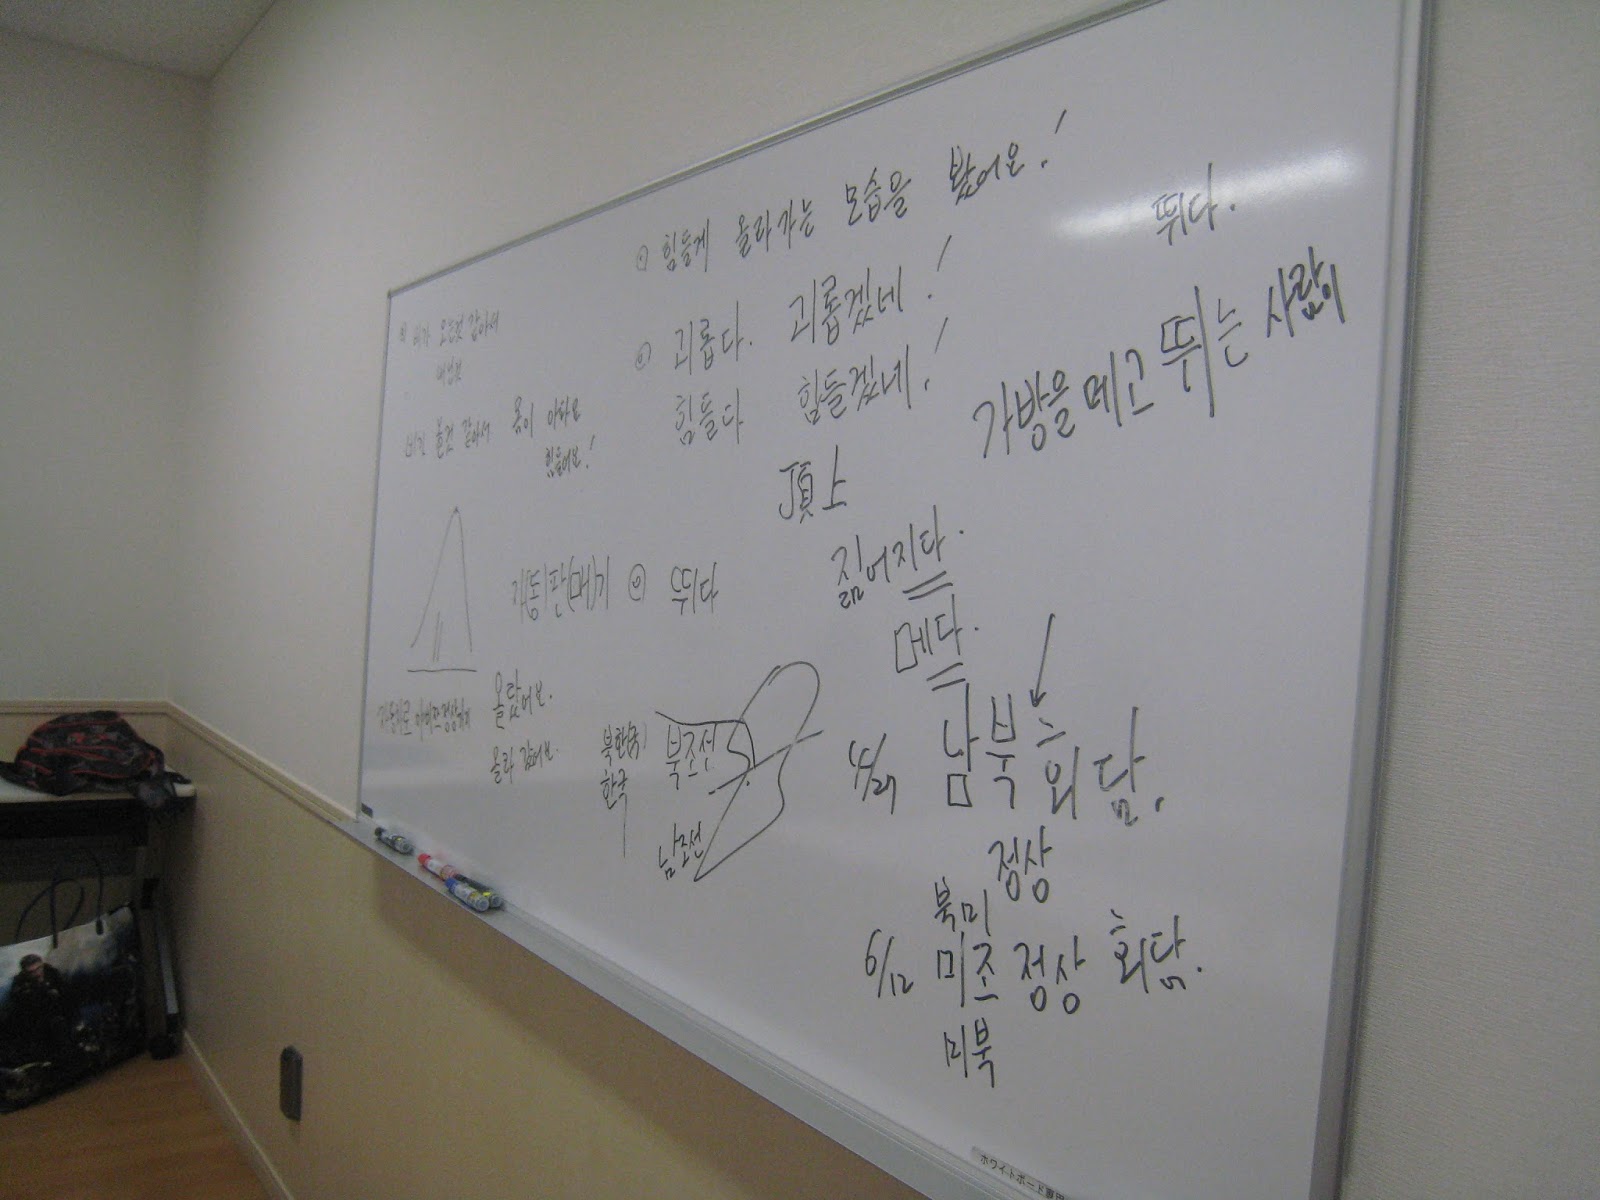 비가 오는것 같아서
비가 올것 같아서 몸이 아파요
힘들어요!
◎ 힘들게 올라가는 모습을 봤어요!
◎ 괴롭다. 괴롭겠네!
힘들다 힘들겠네!
뛰다.
가방을 메고 뛰는 사람이
頂上
짊어지다.
메다.
자(동)판(매)기 ◎ 쉬다
올랐어요.
올라 갔어요.
북한(국)
한국
북조선
남조선
4/27 남북 회담.
정상
북미
6/12 미조 정상 회담.
미북
ホワイトボード専用